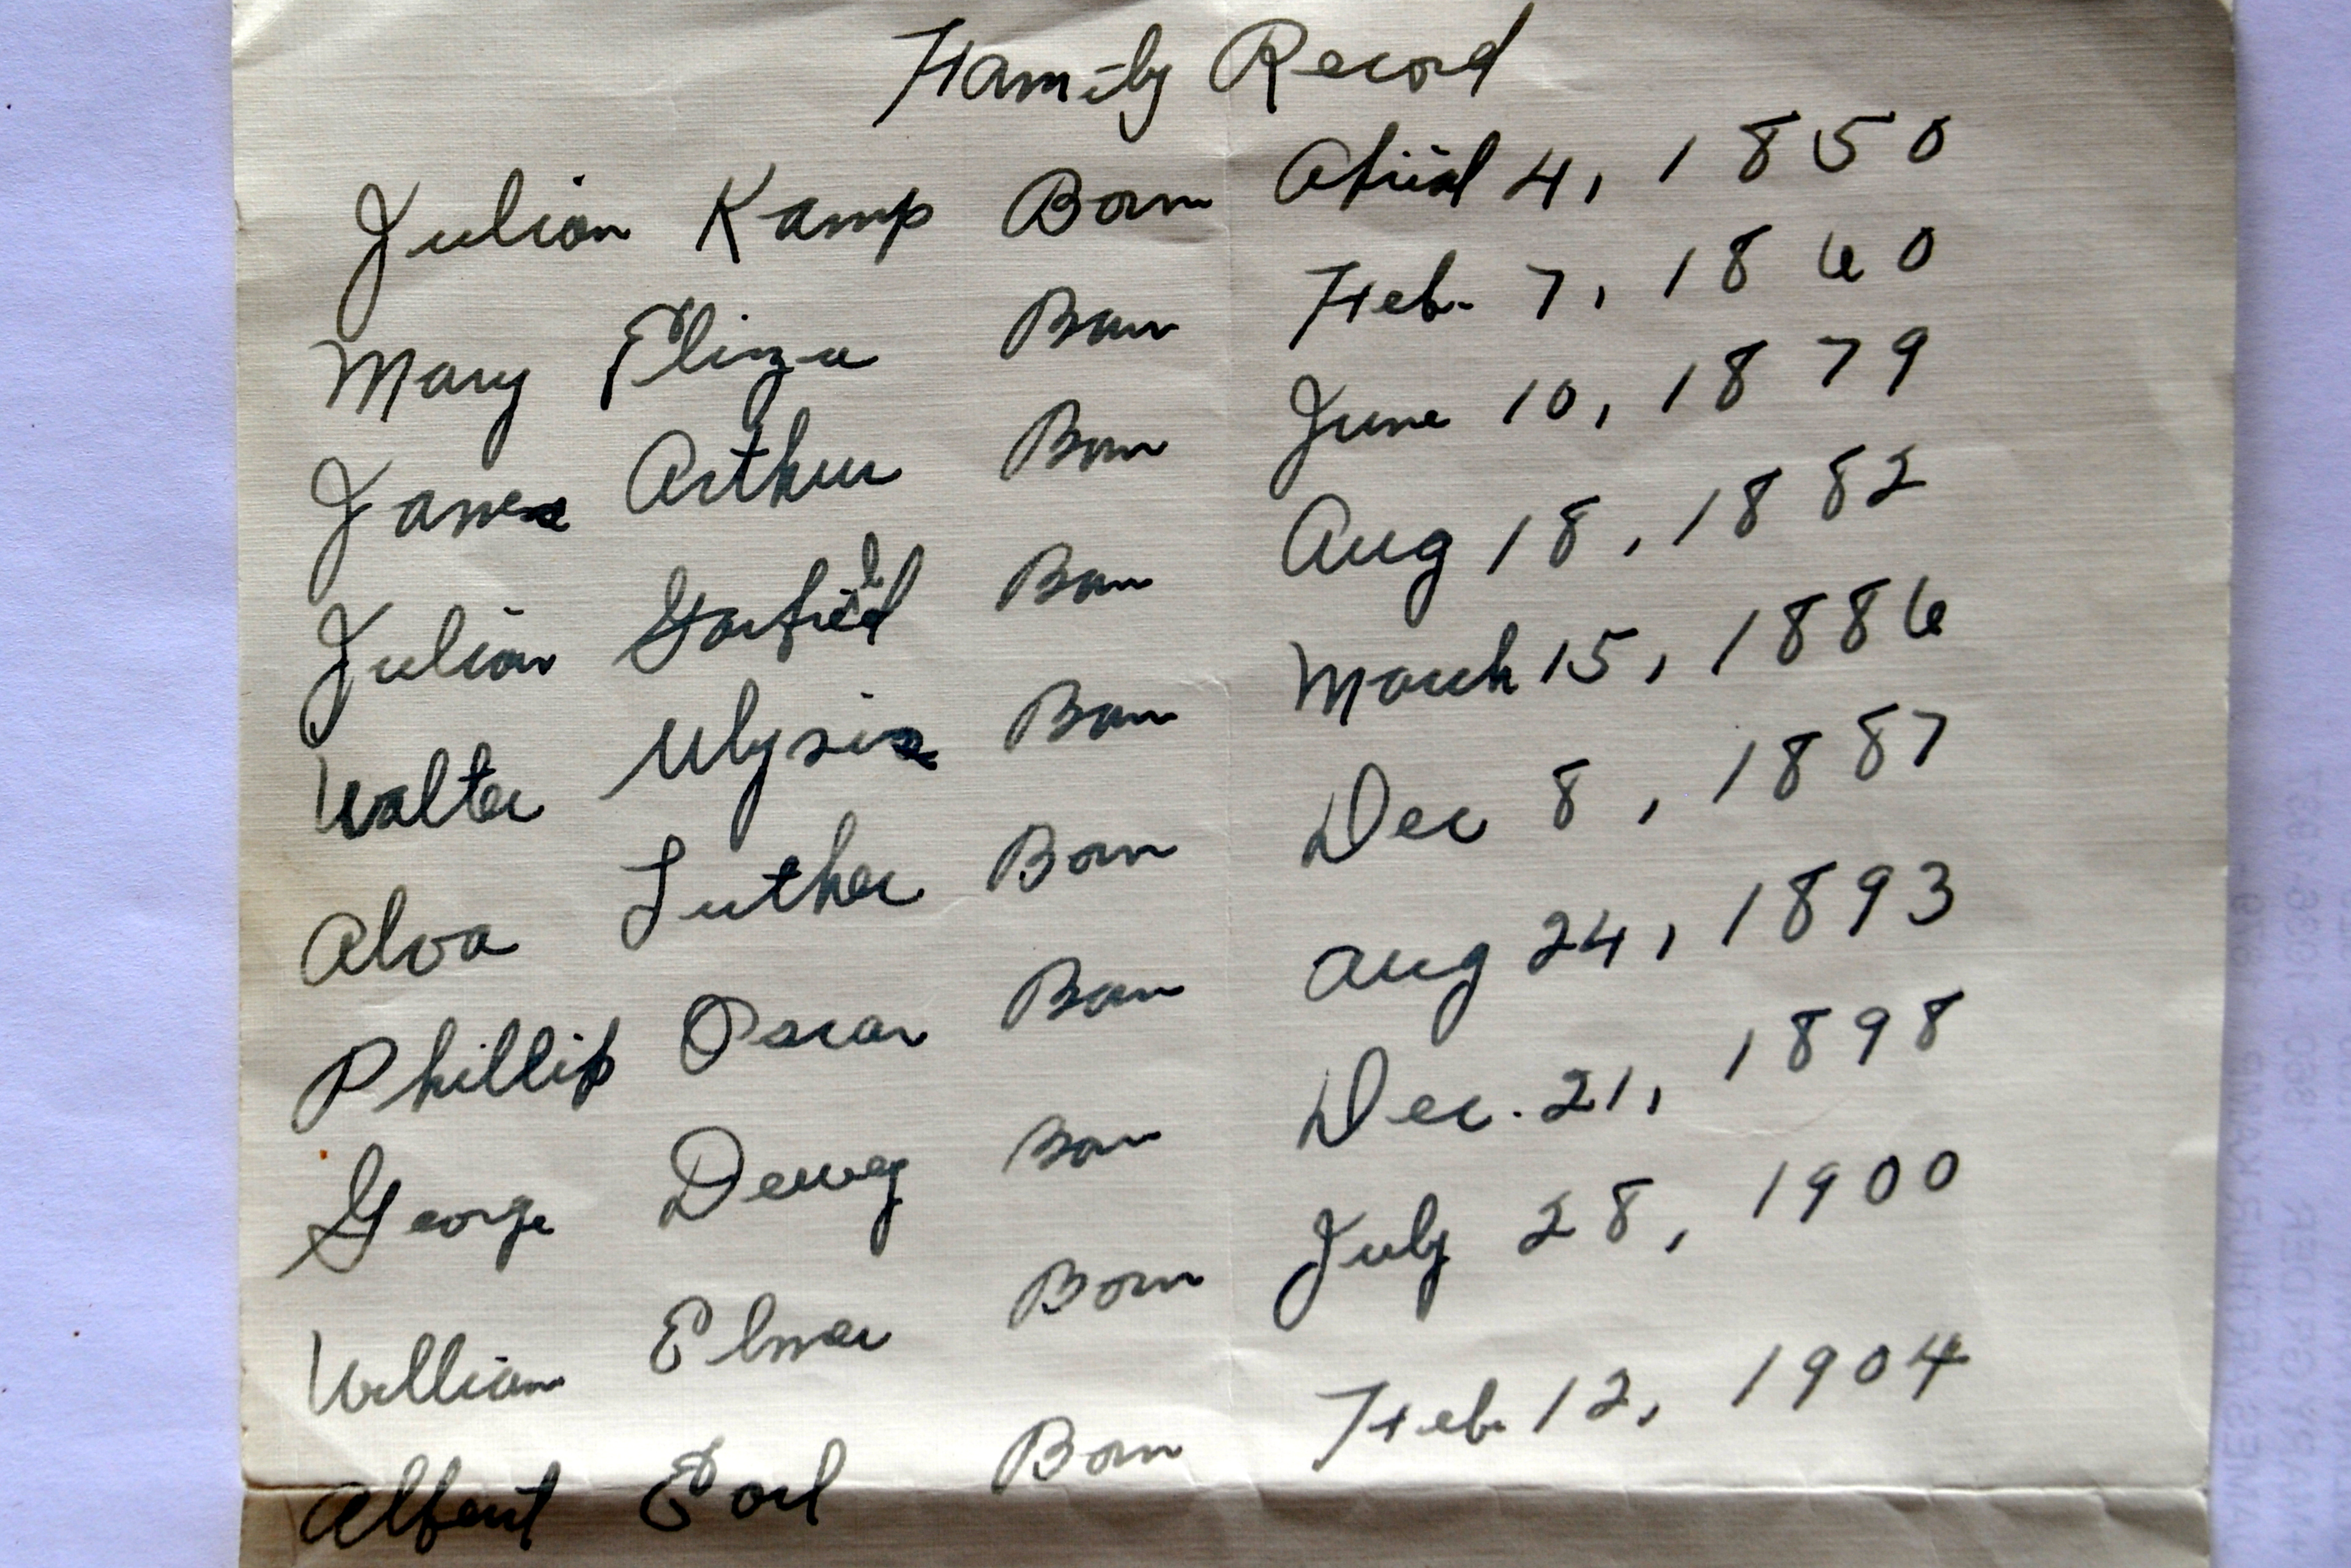 Family Record
Julian Kamp Born April 4, 1850
Mary Eliza Born Feb. 7, 1860
James Arthur Born June 10, 1879
Julian Garfield Born Aug 18, 1882
Walter Ulysis Born March 15, 1886
Alva Luther Born Dec 8, 1887
Phillip Oscar Born Aug 24, 1893
George Dewey Born Dec. 21, 1898
William Elmer Born July 28, 1900
Albert Earl Born Feb. 12, 1904